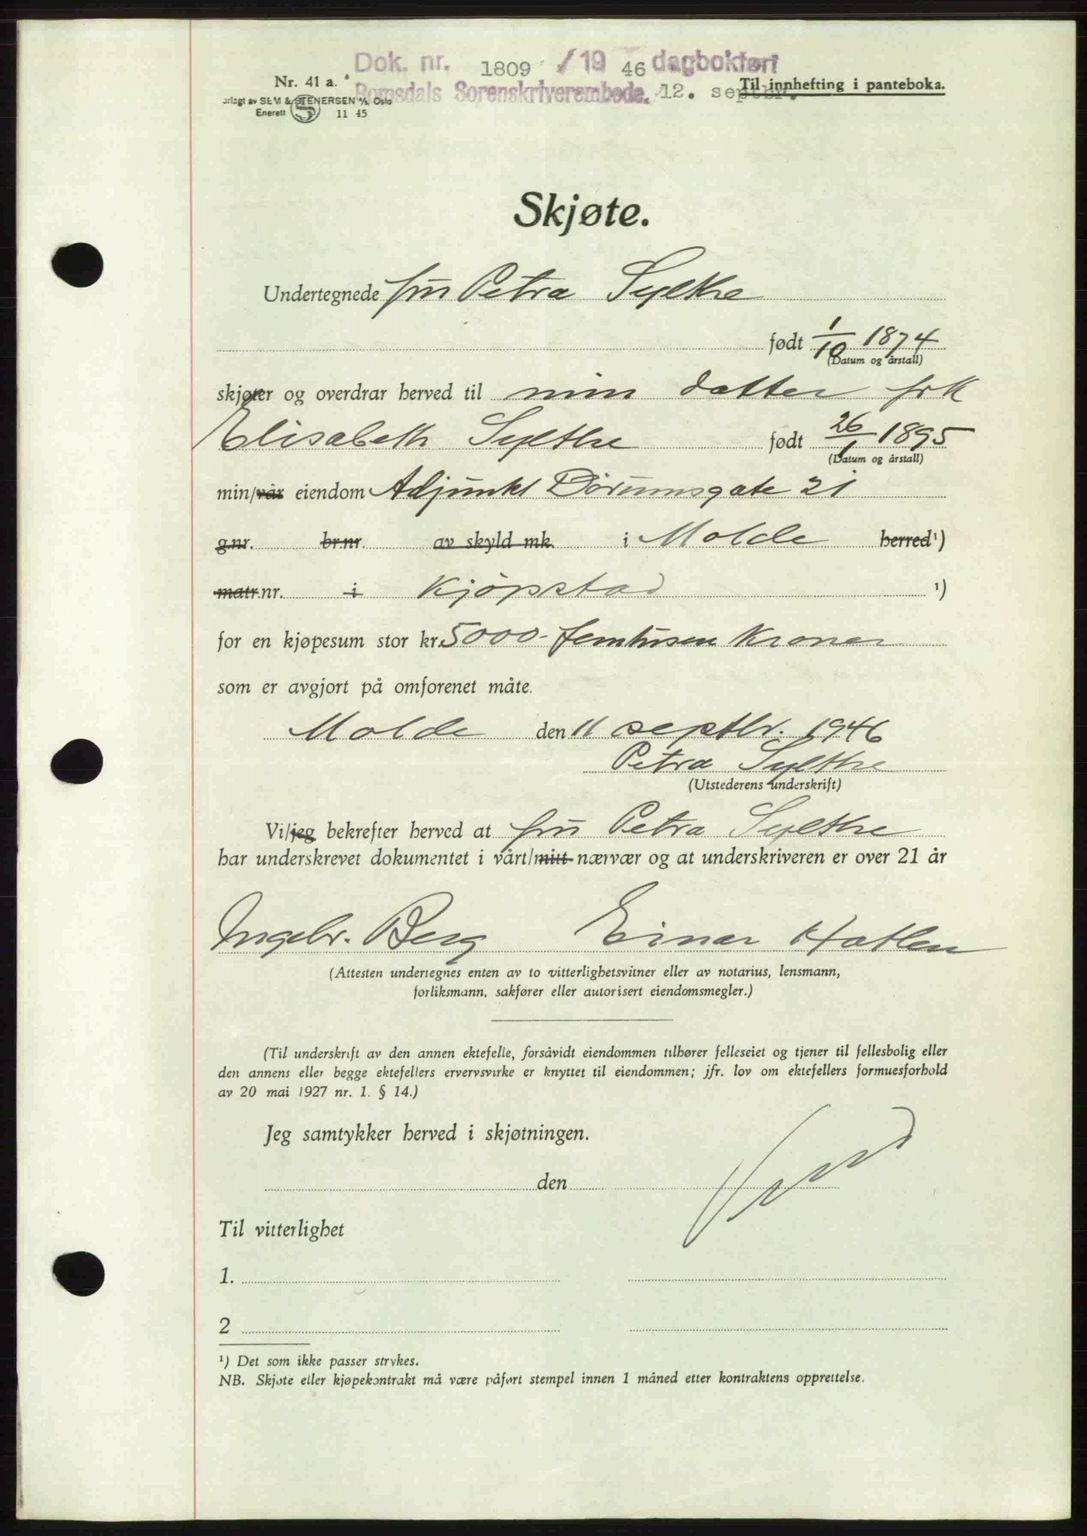 Dok. nr. 1809 / 19 46 dagbokført
Nr. 41 a.
Til innhefting i panteboka.
Romsdals Sorenskriverembede, 12. septbr.
SEM & STENERSEN A/S Oslo
Enerett 11 45
Skjøte.
Undertegnede fru Petra Sylthe
født 1/10 1874
(Datum og årstall)
skjøter og overdrar herved til min datter frk
Elisabeth Sylthe født 26/1 1895
(Datum og årstall)
min/vår eiendom Adjunkt Dørumsgate 21
g.nr. br.nr. av skyld mk. i Molde herred ¹)
matr.nr. i Kjøpstad ¹)
for en kjøpesum stor kr. 5000- femtusen kroner
som er avgjort på omforenet måte.
Molde den 11 septbr. 1946
Petra Sylthe
(Utstederens underskrift)
Vi/jeg bekrefter herved at fru Petra Sylthe
har underskrevet dokumentet i vårt/mitt nærvær og at underskriveren er over 21 år
Ingebr. Berg Einar Hatlen
(Attesten undertegnes enten av to vitterlighetsvitner eller av notarius, lensmann,
forliksmann, sakfører eller autorisert eiendomsmegler.)
(Til underskrift av den annen ektefelle, forsåvidt eiendommen tilhører felleseiet og tjener til fellesbolig eller
den annens eller begge ektefellers ervervsvirke er knyttet til eiendommen; jfr. lov om ektefellers formuesforhold
av 20 mai 1927 nr. 1. § 14.)
Jeg samtykker herved i skjøtningen.
den
Til vitterlighet
1.
2
¹) Det som ikke passer strykes.
NB. Skjøte eller kjøpekontrakt må være påført stempel innen 1 måned etter kontraktens opprettelse.